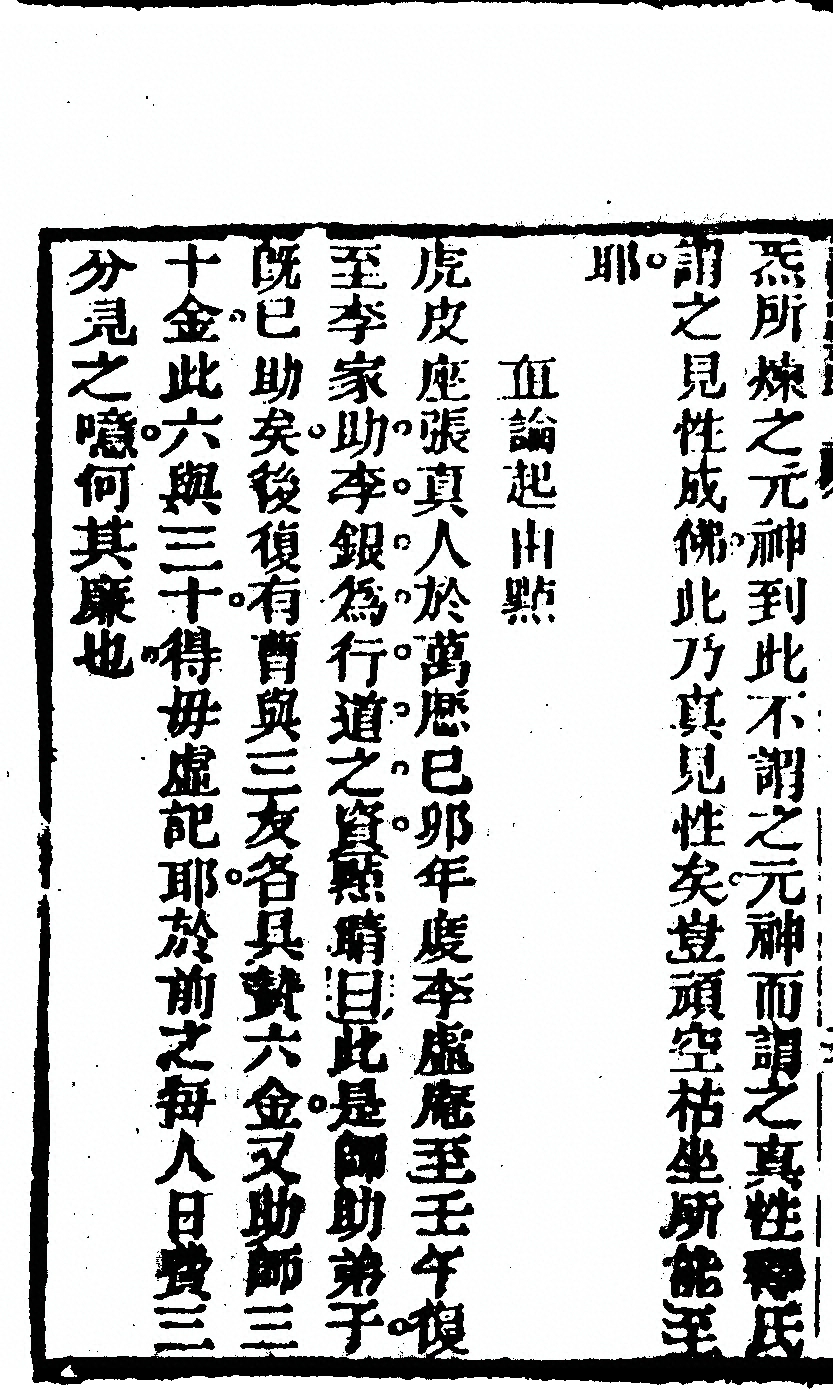 炁所煉之元神到此不謂之元神而謂之真性釋氏
謂之見性成佛此乃真見性矣豈頑空枯坐所能至
耶
直論起由點
虎皮座張真人於萬厯已卯年度李虛庵至壬午復
至李家助李銀為行道之資點睛曰此是師助弟子
既已助矣後復有曹與三友各具贄六金又助師三
十金此六與三十得毋虛記耶於前之每人日費三
分見之噫何其廉也